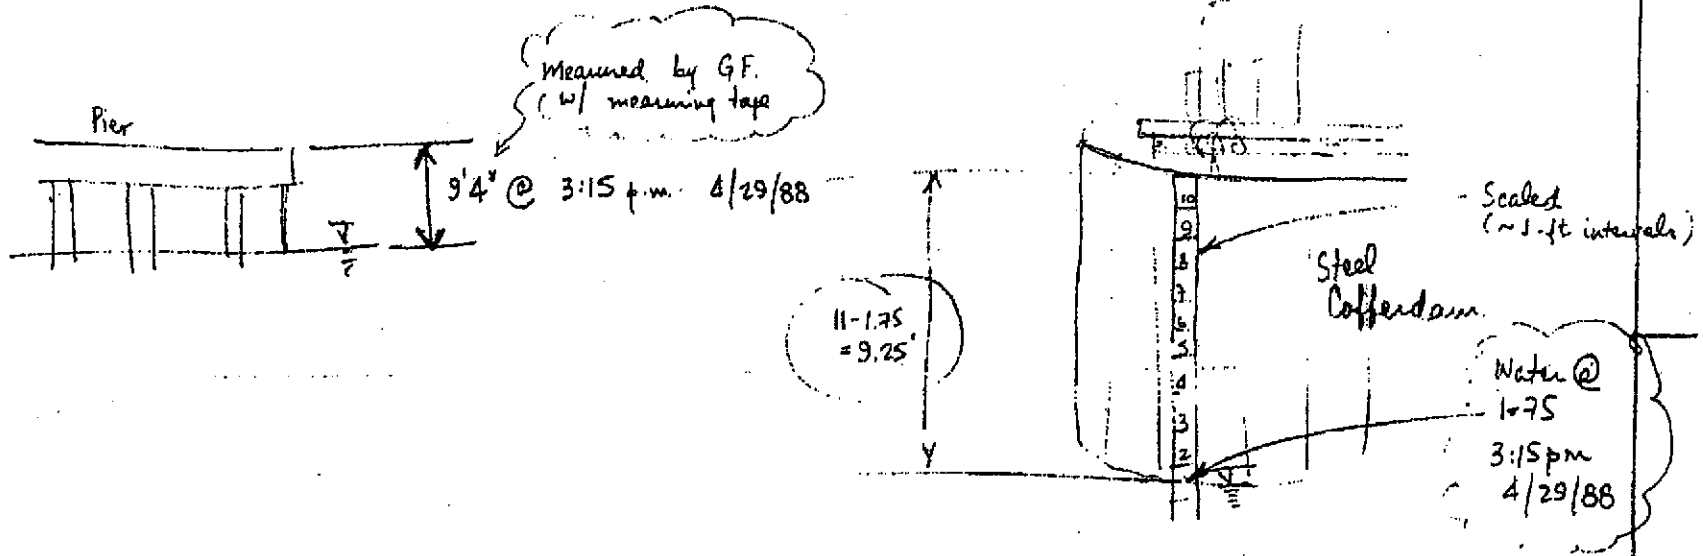 Measured by G.F.
w/ measuring tape
Pier
9'4" @ 3:15 p.m. 4/29/88
11-1.75
=9.25'
10
9
8
7
6
5
4
3
2
Scaled
(~1-ft intervals)
Steel
Cofferdam
Water @
1.75
3:15 pm
4/29/88